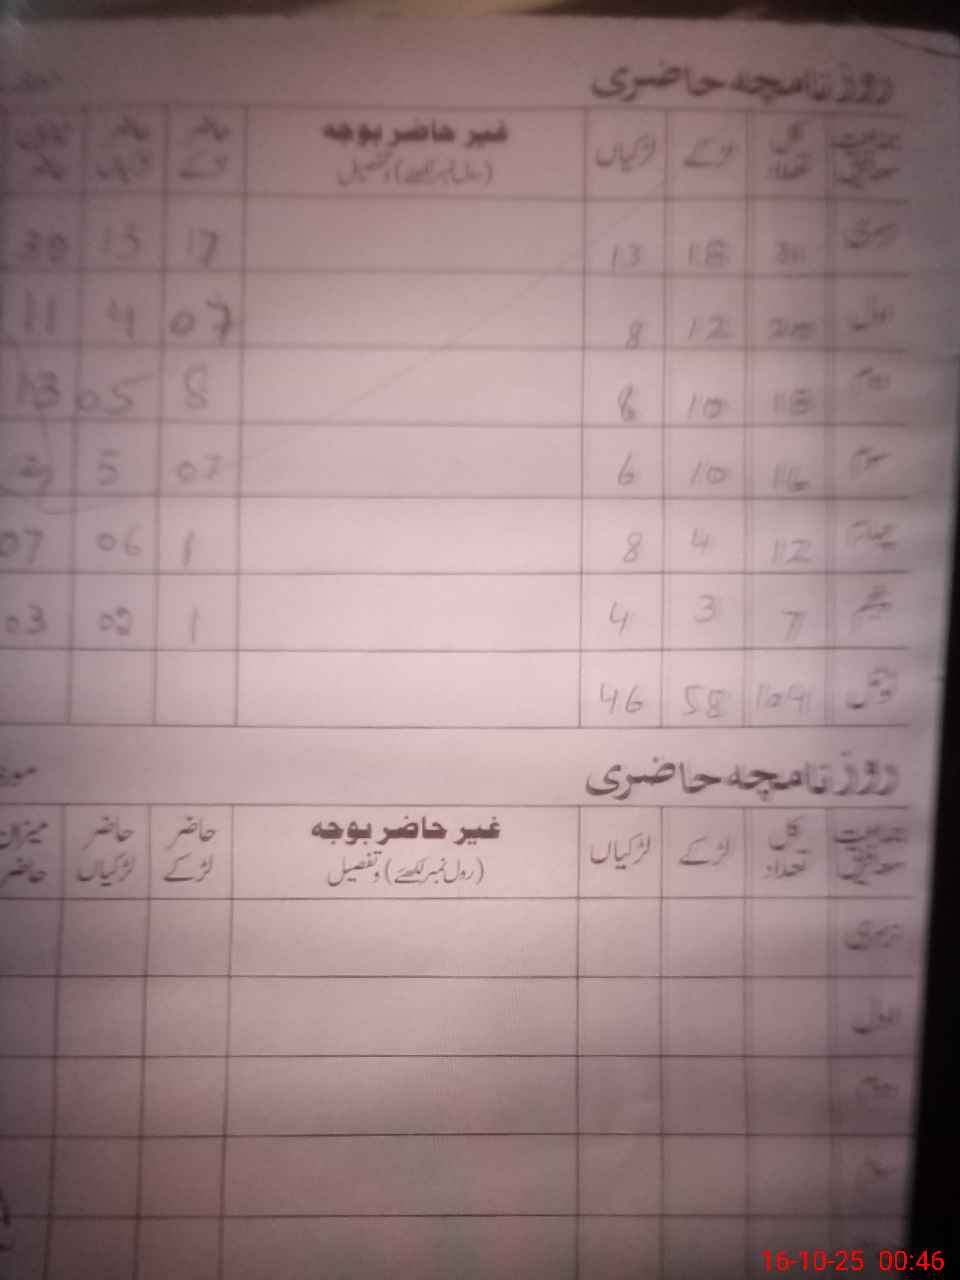 روزنامچہ حاضری
جماعت کل تعداد لڑکے لڑکیاں غیر حاضر بوجہ (رول نمبر لکھیے) و تفصیل حاضر لڑکے حاضر لڑکیاں
نرسری 31 18 13 17 13 30
اول 20 12 8 07 4 11
دوم 18 10 8 8 05 13
سوم 16 10 6 07 5
چہارم 12 4 8 1 06 07
پنجم 7 3 4 1 02 03
104 58 46
روزنامچہ حاضری
جماعت کل تعداد لڑکے لڑکیاں غیر حاضر بوجہ (رول نمبر لکھیے) و تفصیل حاضر لڑکے حاضر لڑکیاں میزان حاضر
نرسری
اول
دوم
سوم
16-10-25 00:46